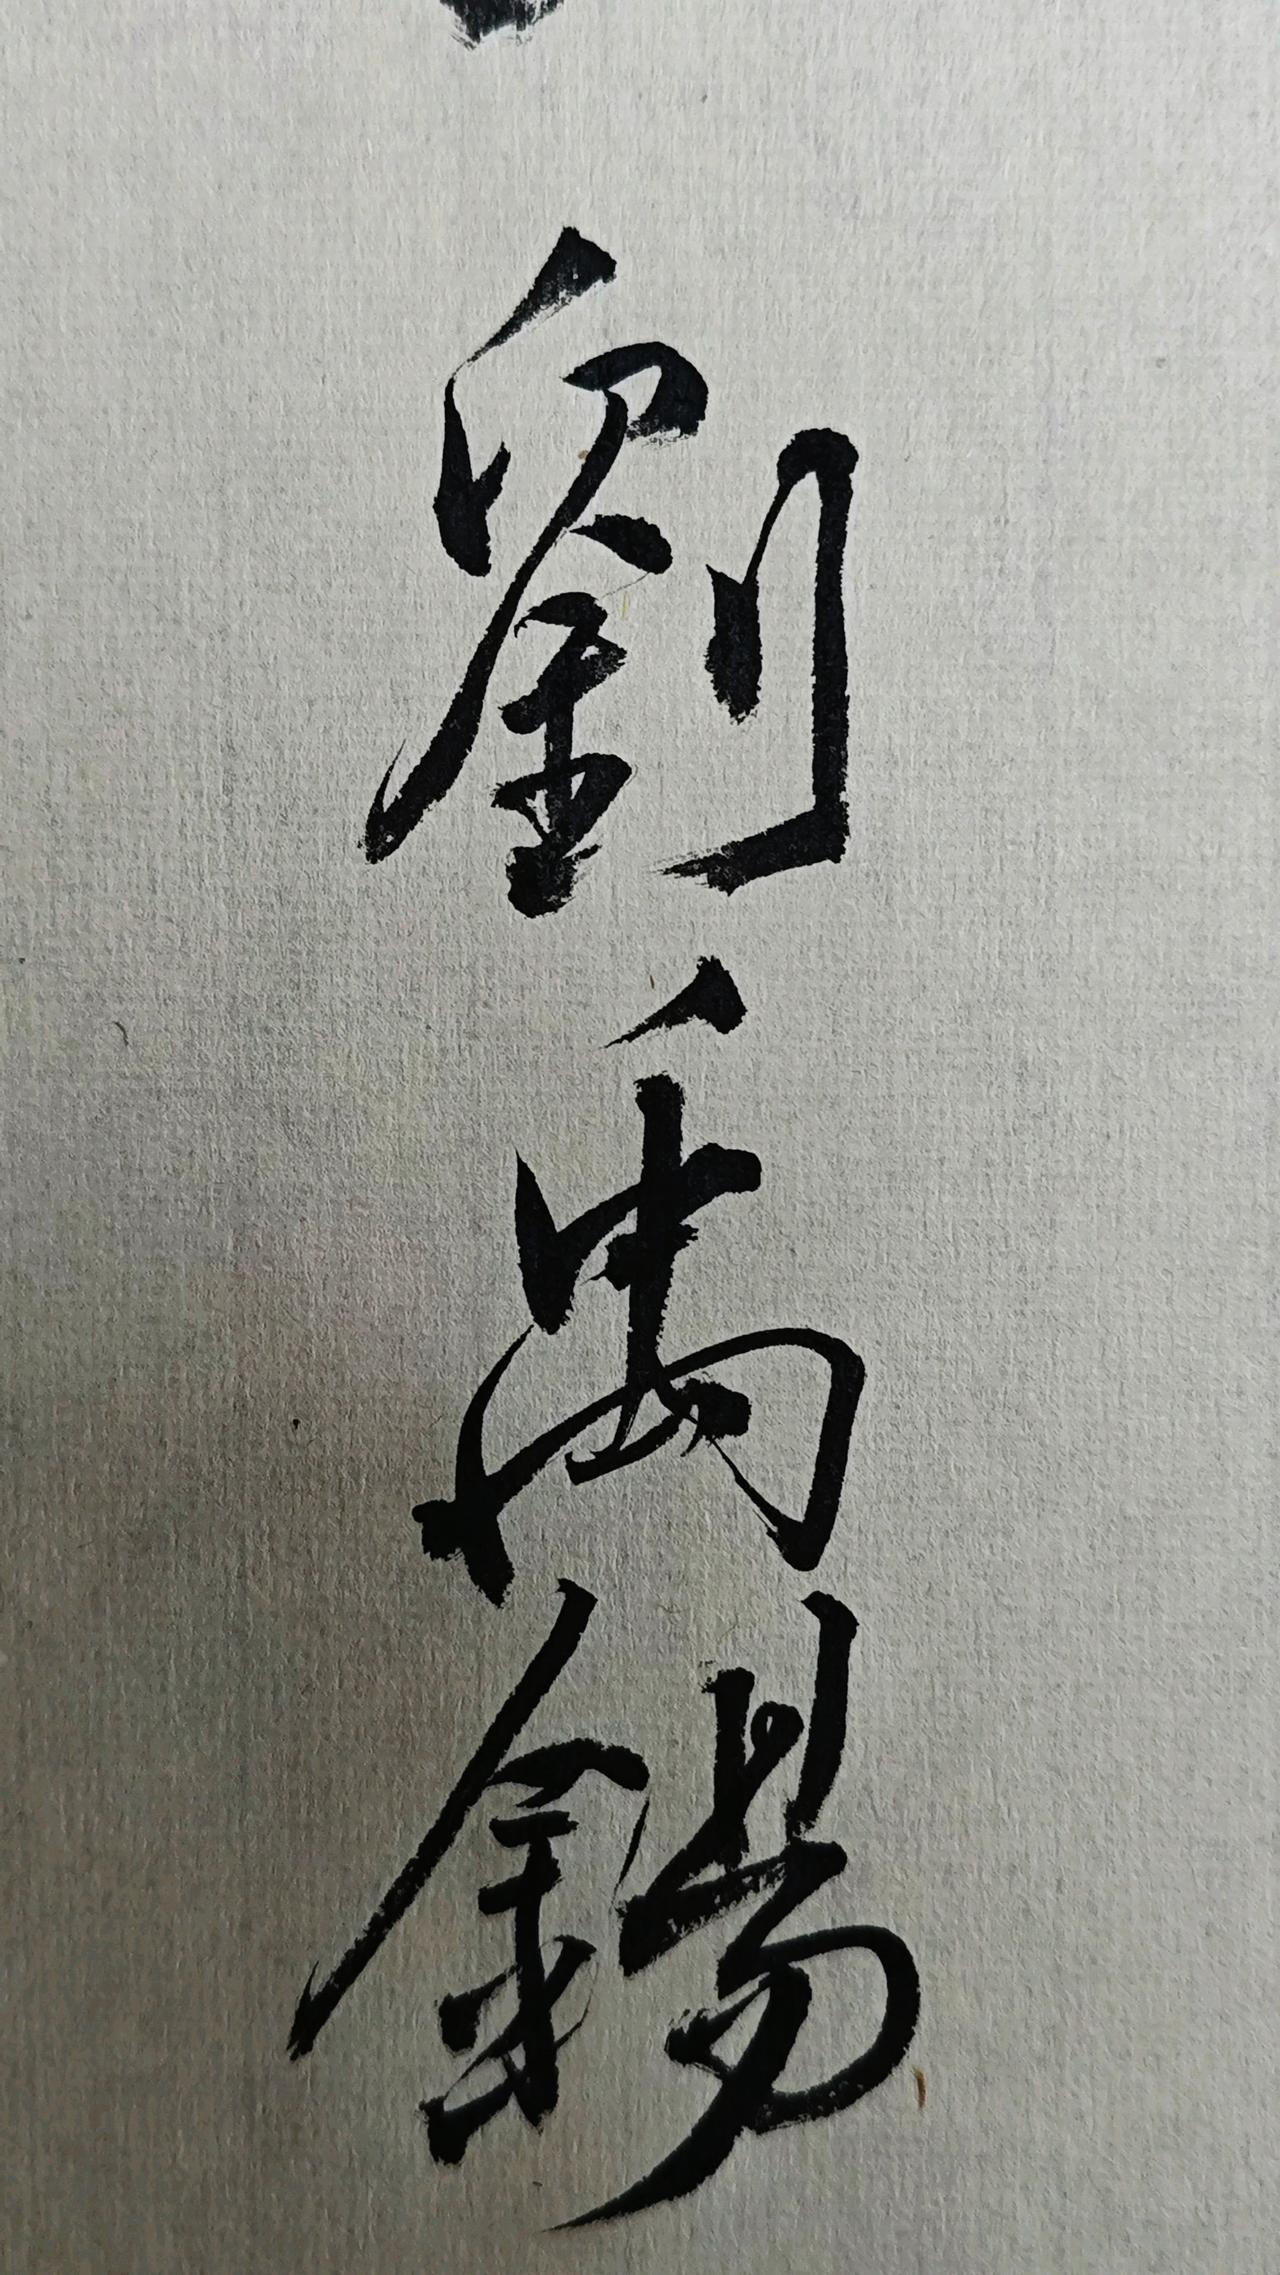 劉禹錫